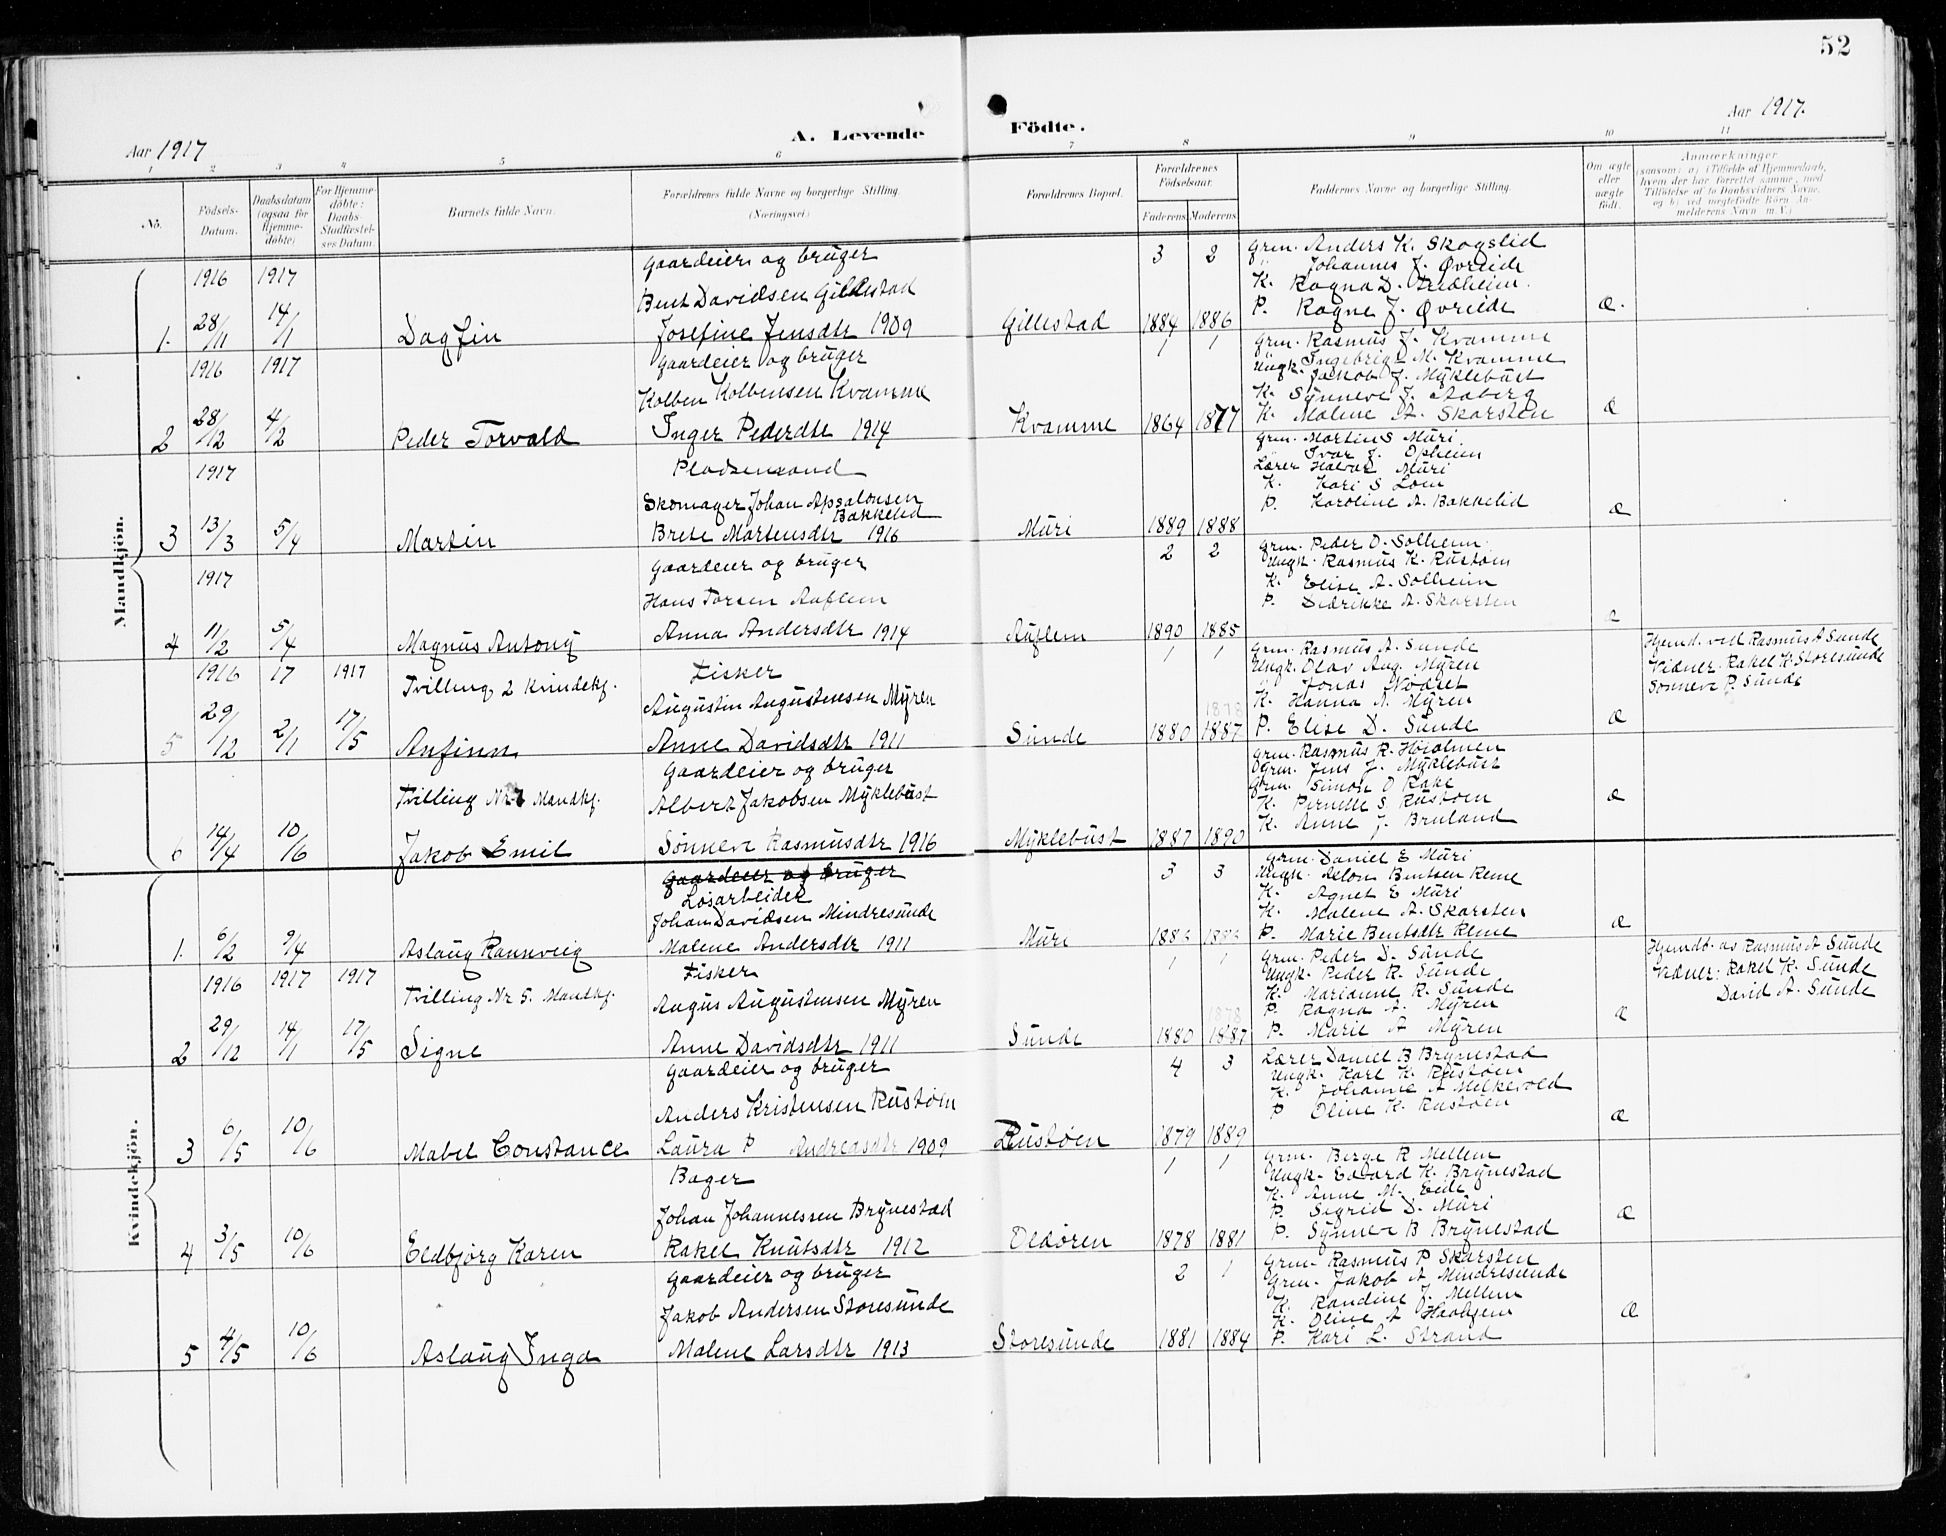 52
Aar 1917
A. Levende Födte.
Aar 1917.
1 2 3 4 5 6 7 8 9 10 11
No.
Födsels-Datum.
Daabsdatum (ogsaa for Hjemme-döbte)
For Hjemme-döbte: Daabs-Stadfæstel-ses Datum.
Barnets fulde Navn.
Forældrenes fulde Navne og borgerlige Stilling. (Næringsvei)
Forældrenes Bopæl.
Forældrenes Födselsaar.
Faderens Moderens
Faddernes Navne og borgerlige Stilling.
Om ægte eller uægte födt.
Anmærkninger
(saasom: a) i Tilfælde af Hjemmedaab, hvem der har forrettet samme, med Tilföielse af to Daabsvidners Navne, og b) ved uægtefödte Börn An-melderens Navn m. V.)
Mandkjön.
1. 1916 28/11 1917 14/1 Dagfin
Gaardeier og bruger
Bent Davidsen Gillestad
Josefine Jensdtr 1909
Gillestad 3 2 1884 1886
Grm. Anders K. Skogslid
Johannes J. Øvreide
K. Ragna D. Andheim.
P. Ragne J. Øvreide
Æ.
2 1916 28/12 1917 4/2 Peder Torvald
Gaardeier og bruger
Kolben Kolbensen Kvamme
Inger Pederdtr 1914
Kvamme 1 1 1864 1877
Grm. Rasmus J. Kvamme
Ungk. Ingebrigt M. Kvamme
Jakob J. Myklebust
K. Synneve J. Aaberg
K. Malene A. Skarsten
Æ
3 1917 13/3 5/4 Martin
Pladsemand
Skomager Johan Apsalonsen Bakkelid
Brete Martensdtr 1916
Muri 1889 1888
Grm. Morten S Muri.
Ivar J. Opheim
Lærer Halvar Muri
K. Kari S Loen
P. Karoline A. Bakkelid
Æ
4 1917 11/2 5/4 Magnus Antony
Gaardeier og bruger
Hans Torsen Aaflem
Anna Andersdtr 1914
Aaflem 2 2 1890 1885
Grm. Peder D. Solheim.
Ungk. Rasmus K. Rustøen
K. Elise A. Solheim
P. Didrikke A. Skarsten
Æ
5 1916 29/12 17 2/1 1917 17/5 Tvilling 2 Kvindekj.
Anfinn
Fisker
Augustin Augustensen Myren
Anne Davidsdtr 1911
Sunde 1 1 1880 1887 1878
Grm. Rasmus A. Sunde
Ungk. Olav Aug. Myren
Jonas Nødset
K. Hanna A. Myren
P. Elise D. Sunde
Æ
Hjemd. ved Rasmus A Sunde
Vidner. Rakel K. Storesunde
Sønneve P. Sunde
6 14/4 10/6 Tvilling Nr Mandkj.
Jakob Emil
Gaardeier og bruger
Albert Jakobsen Myklebust
Sønneve Rasmusdtr 1916
Myklebust 1887 1890
Grm. Rasmus R. Høialmen
Grm. Jens J. Myklebust
Grm. Simon D Rake
K. Pernelle S. Rustøen
K. Anne J. Bruland
Æ
Kvindekjön.
1. 6/2 9/4 Aslaug Rannveig
Gaardeier og bruger
Løsarbeider
Johan Davidsen Mindresunde
Malene Andersdtr 1911
Muri 3 3
Grm. Daniel E Muri
Ungk. Bentsen Rene
K. Agnet E Muri
K. Malene A. Skarsten
P. Marie Bentsdtr Rene
Æ
2 1916 29/12 1917 14/1 1917 17/5 Tvilling Nr 5. Mandkj.
Signe
Fisker
Augus Augustensen Myren
Anne Davidsdtr 1911
Sunde 1 1 1880 1887 1878
Grm. Peder D. Sunde
Ungk. Peder R. Sunde
K. Marianne R. Sunde
P. Ragna A. Myren
P. Marie A Myren
Æ
Hjemdt. av Rasmus A Sunde
Vidner: Rakel K. Sunde
David A. Sunde
3 6/5 10/6 Mabel Constance
Gaardeier og bruger
Anders Kristensen Rustøen
Laura P Andreasdtr 1909
Rustøen 4 3 1879 1889
Lærer Daniel B Brynestad
Ungk. Karl K. Rustøen
K. Johanne A Melkevold
P Oline K. Rustøen
Æ
4 3/5 10/6 Eldbjørg Karen
Bager
Johan Johannessen Brynestad
Rakel Knutsdtr 1912
Oldøren 1 1 1878 1881
Grm. Berge R Mellem
Ungk. Edvard K. Brynestad
K. Anne M. Eide
P. Sigrid D. Muri
P. Synneve B Brynestad
Æ
5 4/5 10/6 Aslaug Inga
Gaardeier og bruger
Jakob Andersen Storesunde
Malene Larsdtr 1913
Storesunde 2 1 1881 1884
Grm. Rasmus P Skarsten
Grm. Jakob A Mindresunde
K. Randine J. Mellem
K. Oline A Haahjem
P. Kari L. Strand
Æ